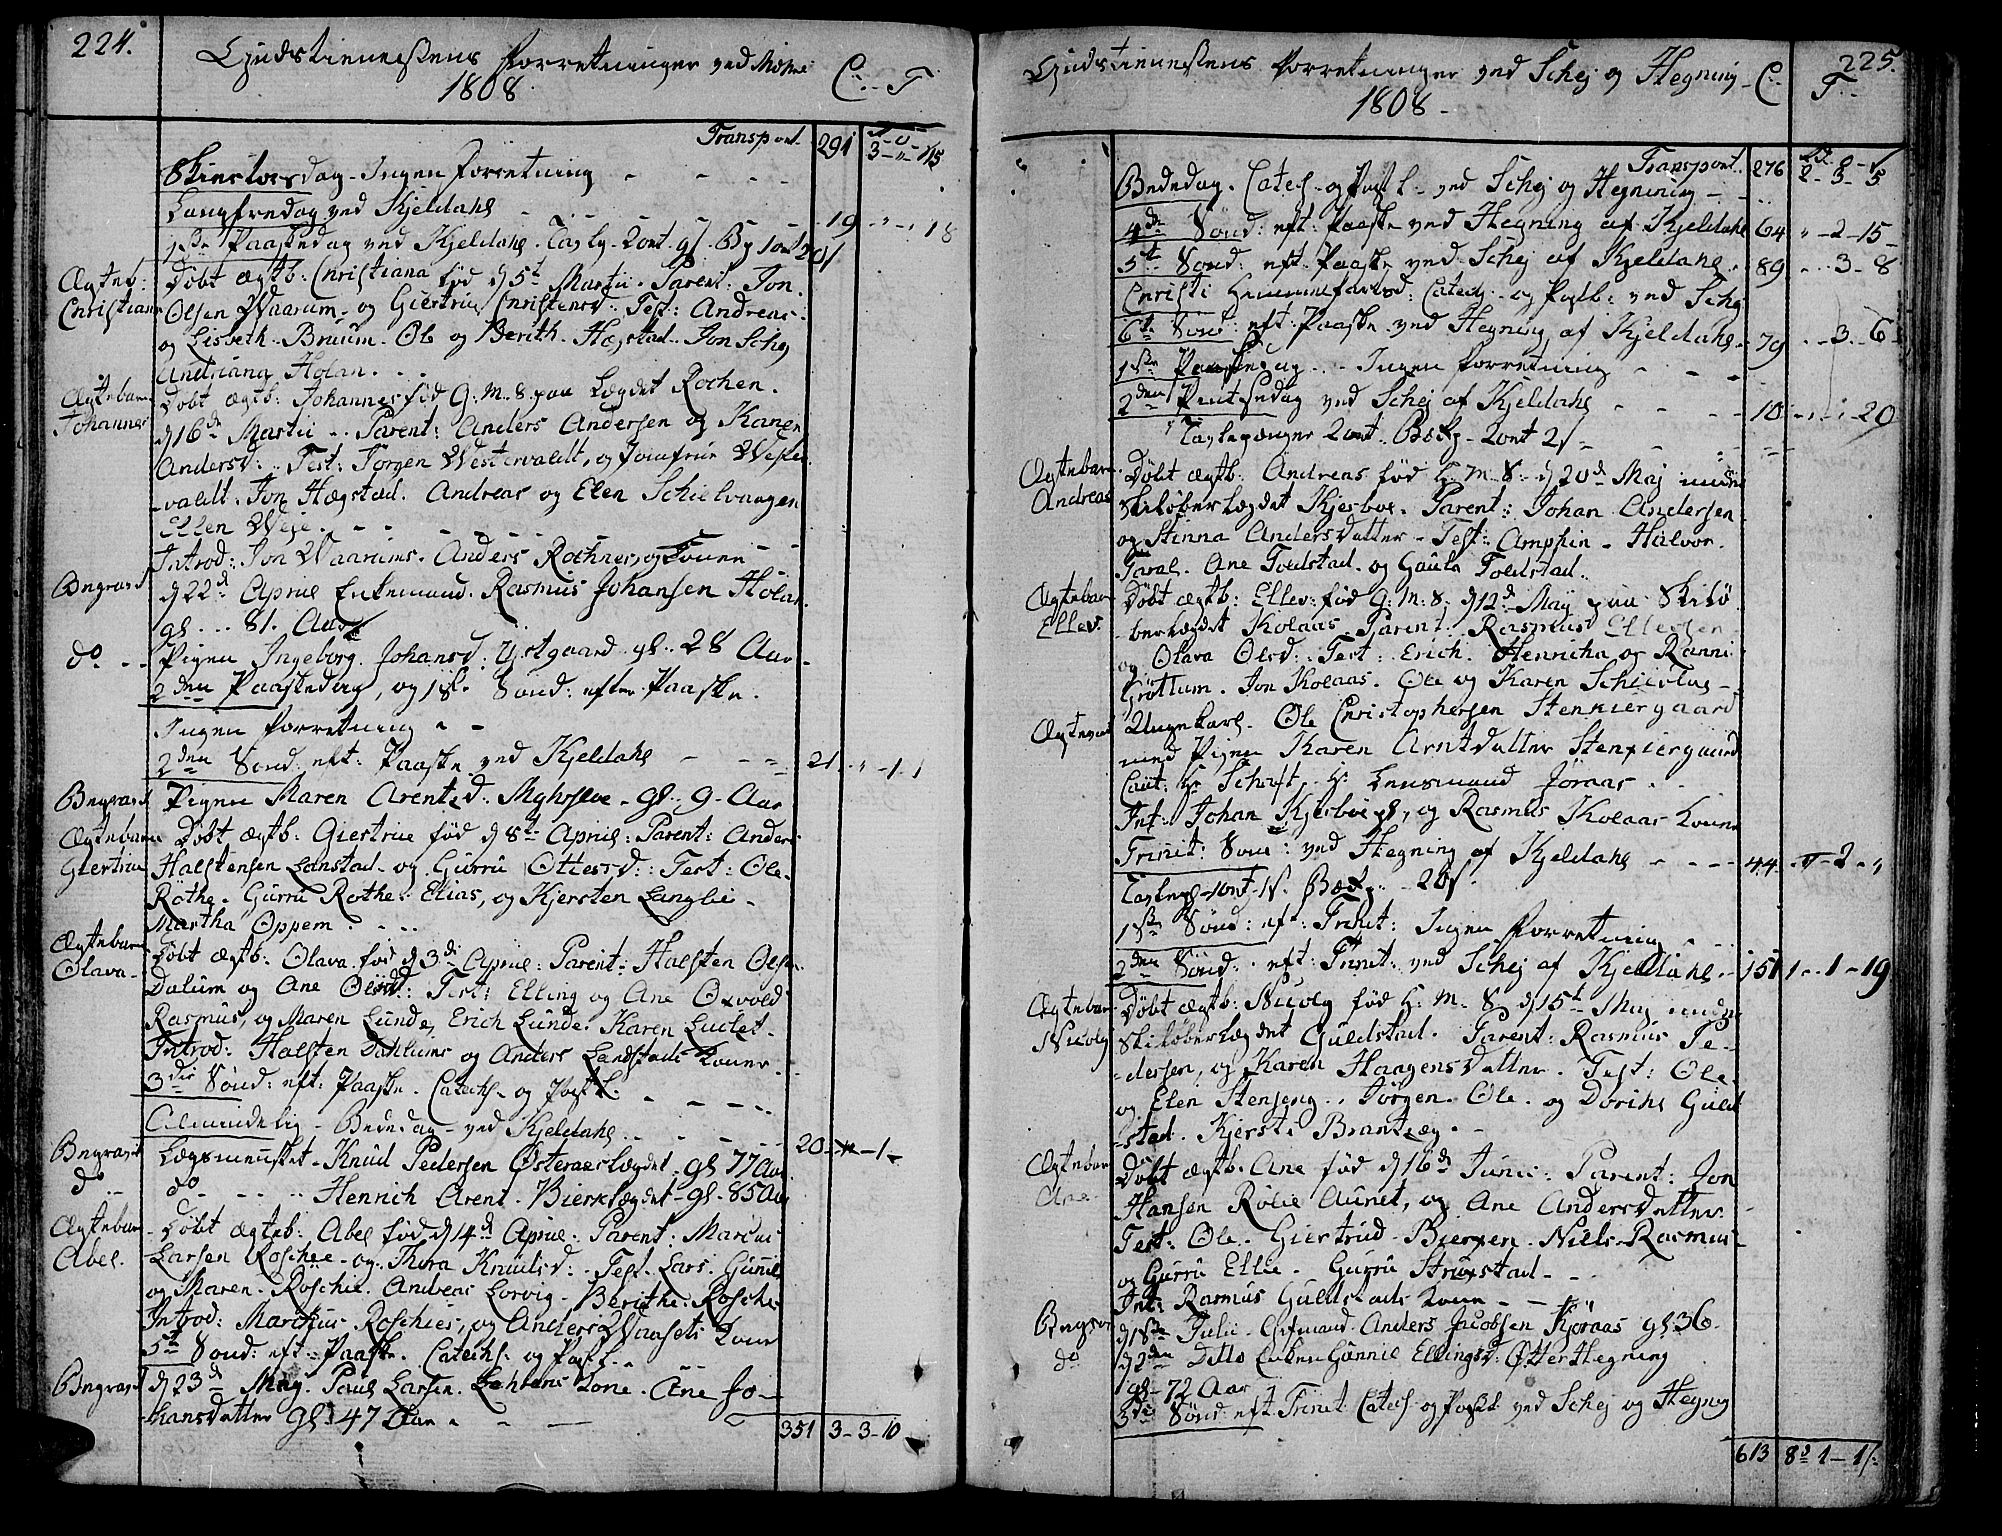 224.
Gudstienestens Forretninger ved Mære
1808.
C. T
Transport 291 3 - " - 15
Skiertorsdag - Ingen Forretning
Langfredag ved Kjeldahl 19 " - " 18
1ste Paaskedag ved Kjeldahl.
Ægteb: Døbt ægtb: Christiana fød d 5t Martii. Parent: Jon
Christiana Olsen Waarum og Giertrue Christensd: Test: Andreas
og Lisbeth Bruum. Ole og Berith Hægstad. Jon Schej
Andriana Holan.
Ægtebarn Døbt ægtb: Johannes fød g. M. 8 paa Lægdet Rochen
Johannes d 16de Martii. Parent: Anders Andersen og Karen
Andersd: Test: Jørgen Westervaldt, og Jomfrue Wester
valdt. Jon Hægstad. Andreas og Elen Schielvaagen
Ellen Weje.
Introd: Jon Waarums. Anders Rochnes, og Koner
Begravet d 22de Aprill Enkemand. Rasmus Johansen Holan
gl. 81. Aar
do Pigen Ingeborg Johansd: Ystgaard gl. 28 Aar
2den Paaskedag, og 1st. Sønd: efter Paaske.
Ingen Forretning
2den Sønd: eft: Paaske ved Kjeldahl 21. " - 1. 1
Begravet Pigen Maren Arentsd. gl. 9 Aar
Ægtebarn Døbt ægtb: Giertrue fød d 8te Aprill: Parent: Anders
Giertrue Halstensen Lanstad og Gurru Ottersd: Test: Ole
Røthe. Gurru Rothe. Elias, og Kjersten Langlie
Martha Oppem
Ægtebarn Døbt ægtb. Olava fød d 3di Aprill: Parent: Halsten Olsen
Olava Dalum og Ane Olsd: Test: Elling og Ane Oxvold
Rasmus, og Maren Lunde, Erich Lunde. Karen Luclet
Introd: Halsten Dahlums og Anders Landstads Koner
3die Sønd: eft: Paaske. Catechs - og Post l.
Almindelig Bededag ved Kjeldahl 20 - " - 1 -
Begravet Lægsmennsket Knud Pedersen Østeraaslægdet gl 77 Aar
do do Henrich Arent. Bierklægdet gl. 85 Aar
Ægtebarn Døbt ægtb: Abel fød d 14de Aprill. Parent: Marcus
Abel. Larsen Roschie og Thora Knudsd: Test. Lars. Gunild
og Maren Roschie. Andreas Lorvig. Berithe Roschie
Introd: Marckus Roschies, og Anders Waasets Koner
5te Sønd: eft: Paaske. Catechs: og Post l.
Begravet d 23de Maj. Paul Larsen Kone. Ane Jo-
hansdatter gl. 47 Aar.
351 3 - 3 - 10
225.
Gudstienestens Forretninger ved Schej og Hegning
1808.
C T
Transport 276 2 - 3 - 5
Bededag. Catech. og Post l. ved Schej og Hegning
4de Sønd: eft: Paaske ved Hegning af Kjeldahl 64 " - 2 - 15
5te Sønd: eft: Paaske ved Schej af Kjeldahl 89 3 - 8
Christi Himmelfartsd: Catech. og Postl: ved Schej
6te Sønd: eft: Paaske ved Hegning af Kjeldahl 79 3 - 6
1ste Pintsedag Ingen Forretning
2den Pintsedag ved Schej af Kjeldahl 10 20
Ægtebarn Døbt ægtb: Andreas fød g. M. 8. d 20de Maj under
Andreas Skiløberlægdet Kjerboe. Parent: Johan Andersen
og Stinna Andersdatter. Test: Halvor
Ane Foldstad. og Guule Foldstad.
Ægtebarn Døbt ægtb: Ellev: fød g. M. 8. d 12de May paa Skilø
Ellev. berlægdet Kolaas. Parent: Rasmus Ellefsen
og Olava Olsd: Test: Erich. Henricha og Ranni
Grøttum. Jon Kolaas. Ole og Karen
Ungekarl Ole Christophersen Stenkiergaard
med Pigen Karen Arntdatter Stenkiergaard
Caut: Hr Schaft, Hr Lensmand Jøraas
Int: Johan og Rasmus Kolaas Koner
Trinit: Sønd: ved Hegning af Kjeldahl 44 - " - 2 - "
1ste Sønd: eft: Trinit: Ingen Forretning
2den Sønd: eft: Trinit: ved Schej af Kjeldahl 151 1 - 1 - 19
Ægtebarn Døbt ægtb: Nicolj fød g. M. 8 d 15te Maj under
Nicolj Skiløberlægdet Guldstad. Parent: Rasmus Pe-
dersen, og Karen Haagensdatter. Test: Ole
og Elen Stenseng. Jørgen. Ole. og Dorthe Guld
stad. Kjersti Brantzæg.
Ægtebarn Døbt ægtb. Ane fød d 16de Junii: Parent: Jon
Ane. Hansen Rølie Aunet, og Ane Andersdatter
Test: Ole. Giertrud Bierxen. Niels. Rasmus
og Gurru Ellie. Gurru Struxstad
Int: Rasmus Guldstads Kone
Begravet d 18de Julii. Gifmand Anders Jacobsen Kjøraas gl 36.
do d 2den Ditto Enken Gunnil Ellingsd: Øfter Hegning
gl. 72 Aar
3die Sønd: eft. Trinit: Catech og Postl ved Schej og Hegning
613 8 1 - 1